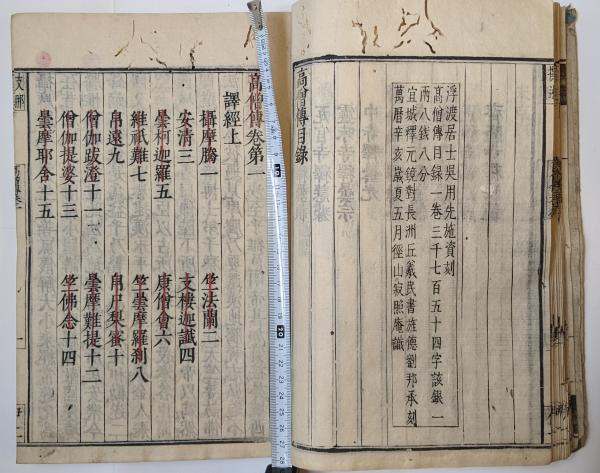 浮渡居士吳用先施資刻
高僧傳目錄一卷三千七百五十四字該銀一
兩八錢八分
宜城釋元鏡對長洲丘義民書旌德劉邦承刻
萬曆辛亥歲夏五月徑山寂照庵識
高僧傳目錄
高僧傳卷第一
譯經上
攝摩騰一 竺法蘭二
安清三 支樓迦讖四
曇柯迦羅五 康僧會六
維祇難七 竺曇摩羅剎八
帛遠九 帛尸梨蜜十
僧伽跋澄十一 曇摩難提十二
僧伽提婆十三 竺佛念十四
曇摩耶舍十五
支那